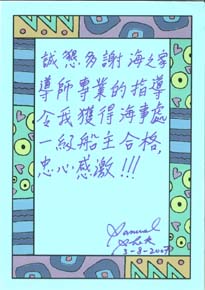 誠懇多謝海之家
導師專業的指導
令我獲得海事處
一級船主合格,
忠心感激!!!
Samuel
3-8-2007